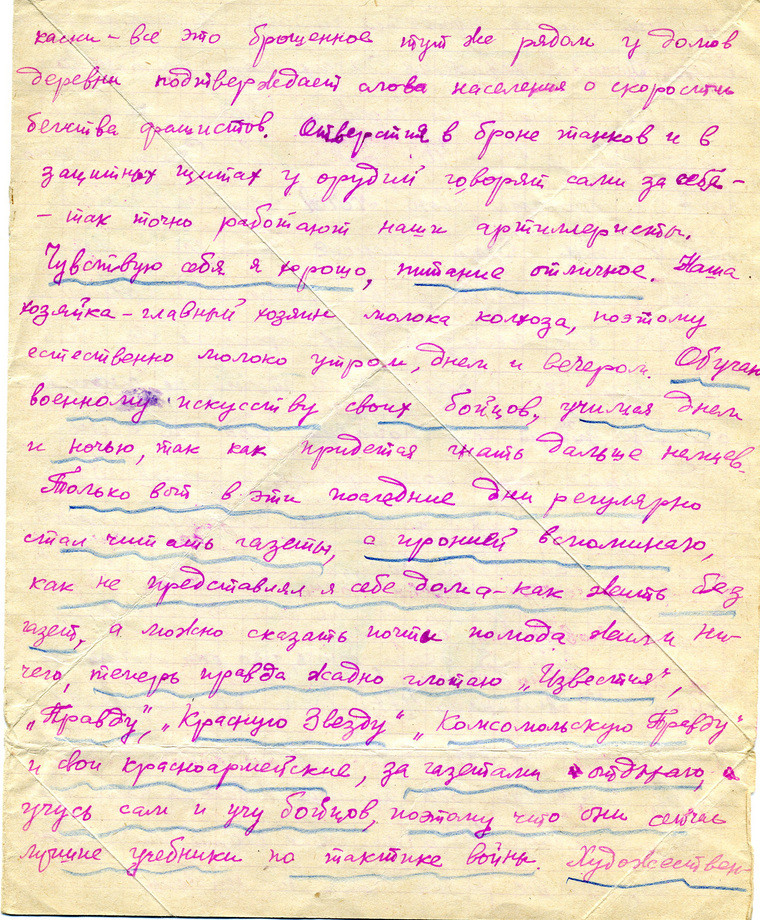 каски – все это брошенное тут же рядом у домов
деревни подтверждает слова населения о скорости
бегства фашистов. Отверстия в броне танков и в
защитных щитах у орудий говорят сами за себя –
– так точно работают наши артиллеристы.
Чувствую себя я хорошо, питание отличное. Наша
хозяйка – главный хозяин молока колхоза, поэтому
естественно молоко утром, днем и вечером. Обучаю
военному искусству своих бойцов, учимся днем
и ночью, так как придется гнать дальше немцев.
Только вот в эти последние дни регулярно
стал читать газеты, с иронией вспоминаю,
как не представлял я себе дома – как жить без
газет, а можно сказать почти полгода жили и ни-
чего, теперь правда жадно глотаю „Известия",
„Правду", „Красную Звезду" „Комсомольскую Правду"
и свои красноармейские, за газетами отдыхаю,
учусь сам и учу бойцов, поэтому что они сейчас
лучшие учебники по тактике войны. Художествен-